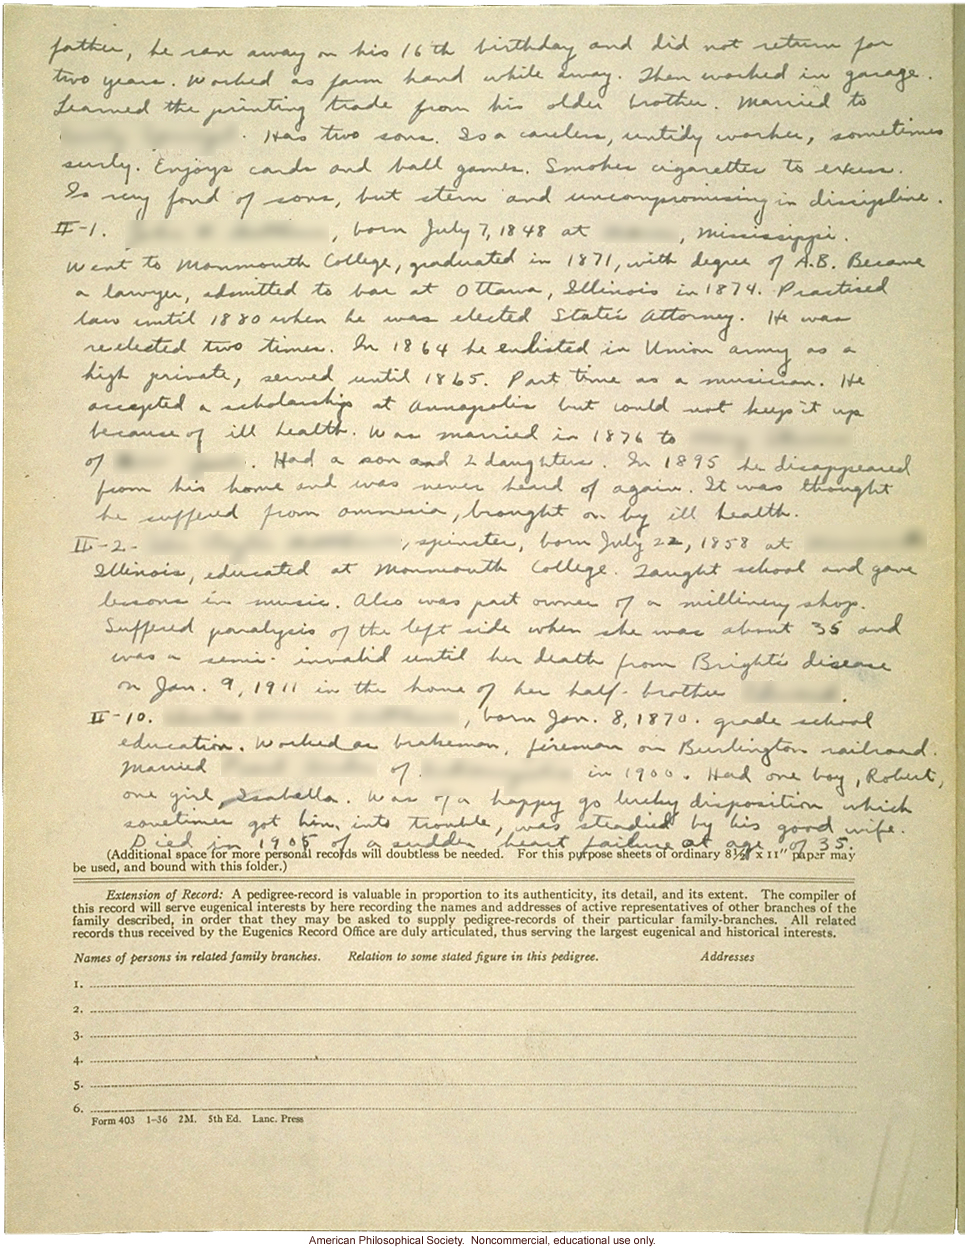 father, he ran away on his 16th birthday and did not return for
two years. Worked as farm hand while away. Then worked in garage.
Learned the printing trade from his older brother. Married to
. Has two sons. Is a careless, untidy worker, sometimes
surly. Enjoys cards and ball games. Smokes cigarettes to excess.
Is very fond of sons, but stern and uncompromising in discipline.
II-1. , born July 7, 1848 at , Mississippi.
Went to Monmouth College, graduated in 1871, with degree of A.B. Became
a lawyer, admitted to bar at Ottawa, Illinois in 1874. Practised
law until 1880 when he was elected State's Attorney. He was
reelected two times. In 1864 he enlisted in Union army as a
high private, served until 1865. Part time as a musician. He
accepted a scholarship at Annapolis but could not keep it up
because of ill health. Was married in 1876 to
of . Had a son and 2 daughters. In 1895 he disappeared
from his home and was never heard of again. It was thought
he suffered from amnesia, brought on by ill health.
II-2- , spinster, born July 22, 1858 at
Illinois, educated at Monmouth College. Taught school and gave
lessons in music. Also was part owner of a millinery shop.
Suffered paralysis of the left side when she was about 35 and
was a semi-invalid until her death from Bright's disease
on Jan. 9, 1911 in the home of her half-brother .
II-10. , born Jan. 8, 1870. grade school
education. Worked as brakeman, fireman on Burlington railroad.
Married of in 1900. Had one boy, Robert,
one girl, Isabella. Was of a happy go lucky disposition which
sometimes got him into trouble, was steadied by his good wife.
Died in 1905 of a sudden heart failure at age of 35.
(Additional space for more personal records will doubtless be needed. For this purpose sheets of ordinary 8½" x 11" paper may
be used, and bound with this folder.)
Extension of Record: A pedigree-record is valuable in proportion to its authenticity, its detail, and its extent. The compiler of
this record will serve eugenical interests by here recording the names and addresses of active representatives of other branches of the
family described, in order that they may be asked to supply pedigree-records of their particular family-branches. All related
records thus received by the Eugenics Record Office are duly articulated, thus serving the largest eugenical and historical interests.
Names of persons in related family branches. Relation to some stated figure in this pedigree. Addresses
1.
2.
3.
4.
5.
6.
Form 403 1-36 2M. 5th Ed. Lanc. Press
American Philosophical Society. Noncommercial, educational use only.